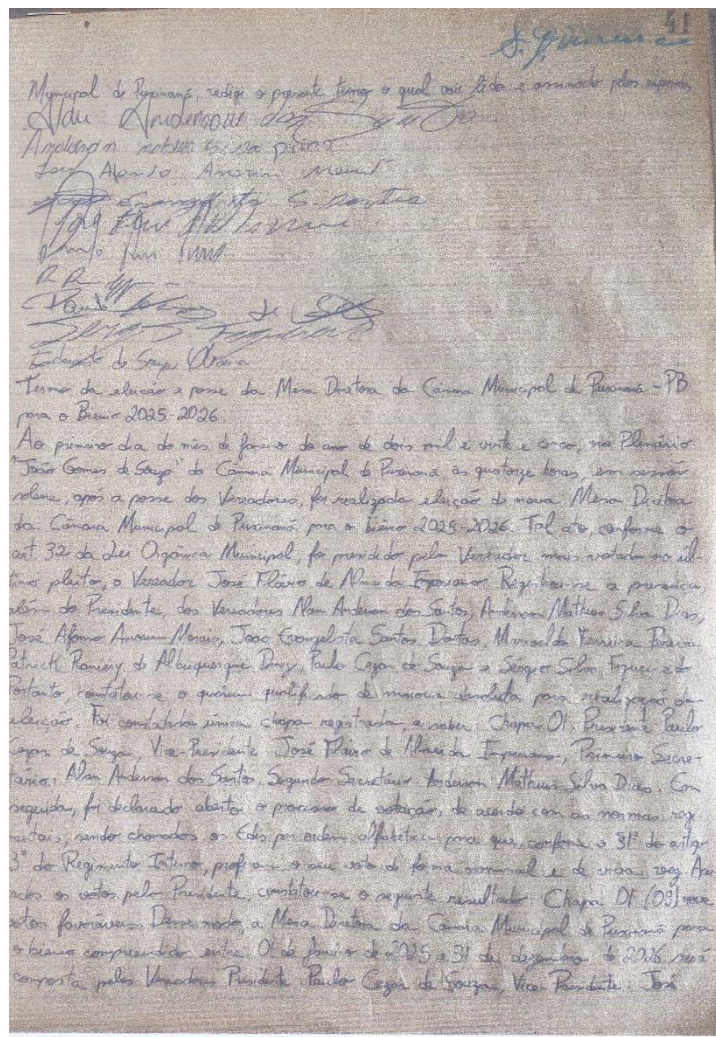 41
Municipal de Puxinanã, redigi o presente termo o qual vai lido e assinado pelos
Alan Anderson dos Santos
Anderson Matheus Silva Dias
José Afonso Amorim Morais
João Evangelista S. Dantas
Paulo de
Termo da eleição e posse da Mesa Diretora da Câmara Municipal de Puxinanã - PB
para o Biênio 2025-2026.
Ao primeiro dia do mês de janeiro do ano de dois mil e vinte e cinco, no Plenário
"João Gomes de Souza" da Câmara Municipal de Puxinanã, às quatorze horas, em sessão
solene, após a posse dos Vereadores, foi realizada eleição da nova Mesa Diretora
da Câmara Municipal de Puxinanã, para o biênio 2025-2026. Tal ato, conforme o
art. 32 da Lei Orgânica Municipal, foi presidido pelo Vereador mais votado no úl-
timo pleito, o Vereador José Flávio de Almeida Imperiano. Registrou-se a presença,
além do Presidente, dos Vereadores Alan Anderson dos Santos, Anderson Matheus Silva Dias,
José Afonso Amorim Morais, João Evangelista Santos Dantas, Ferreira
Patrick Raniery de Albuquerque, Paulo Cezar de Souza e Sérgio Silva Figueiredo.
Portanto, constatou-se o quórum qualificado de maioria absoluta para realização da
eleição. Foi constatada única chapa registrada, a saber: Chapa 01. Presidente Paulo
Cezar de Souza, Vice-Presidente José Flávio de Almeida Imperiano, Primeiro Secre-
tário: Alan Anderson dos Santos, Segundo Secretário: Anderson Matheus Silva Dias. Em
seguida, foi declarado aberto o processo de votação, de acordo com as normas regi-
mentais, sendo chamados os Edis por ordem alfabética para que, conforme o § 1º do artigo
3º do Regimento Interno, profiram o seu voto de forma nominal e de viva voz.
os votos pelo Presidente, constatou-se o seguinte resultado: Chapa 01 (09) nove
votos favoráveis. Desse modo, a Mesa Diretora da Câmara Municipal de Puxinanã para
o biênio compreendido entre 01 de janeiro de 2025 e 31 de dezembro de 2026 será
composta pelos Vereadores Presidente: Paulo Cezar de Souza, Vice-Presidente: José